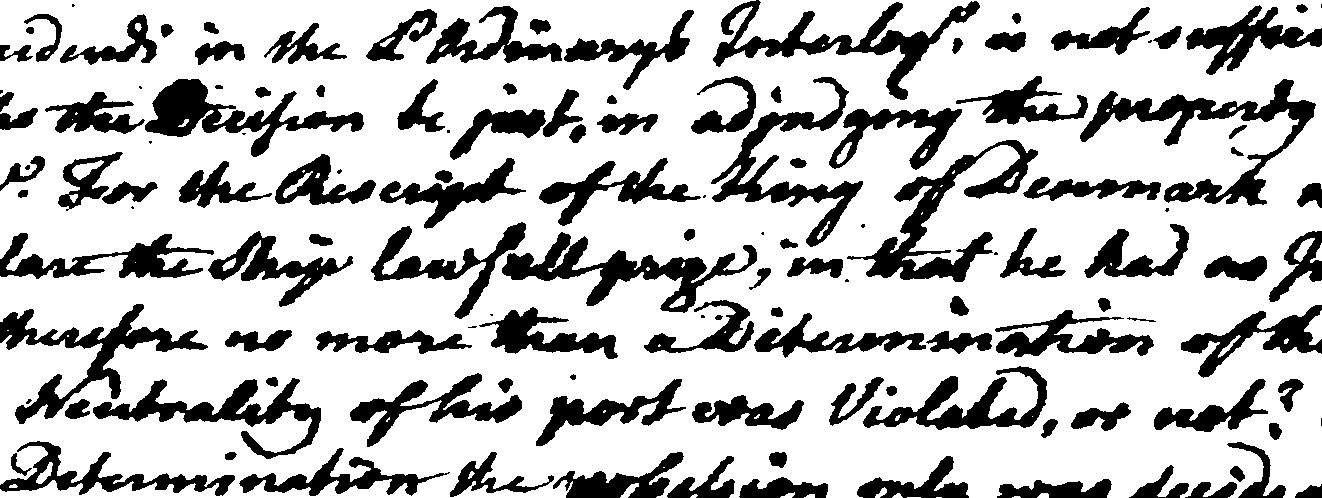 in the Ld Ordinarys Interloqr. is not
the Decision be just, in adjudging the property
For the Rescript of the King of Denmark
the Ship lawfull prize, in that he had no
therefore no more than a Determination of the
Neutrality of his port was Violated, or not?
Determination the possession only was